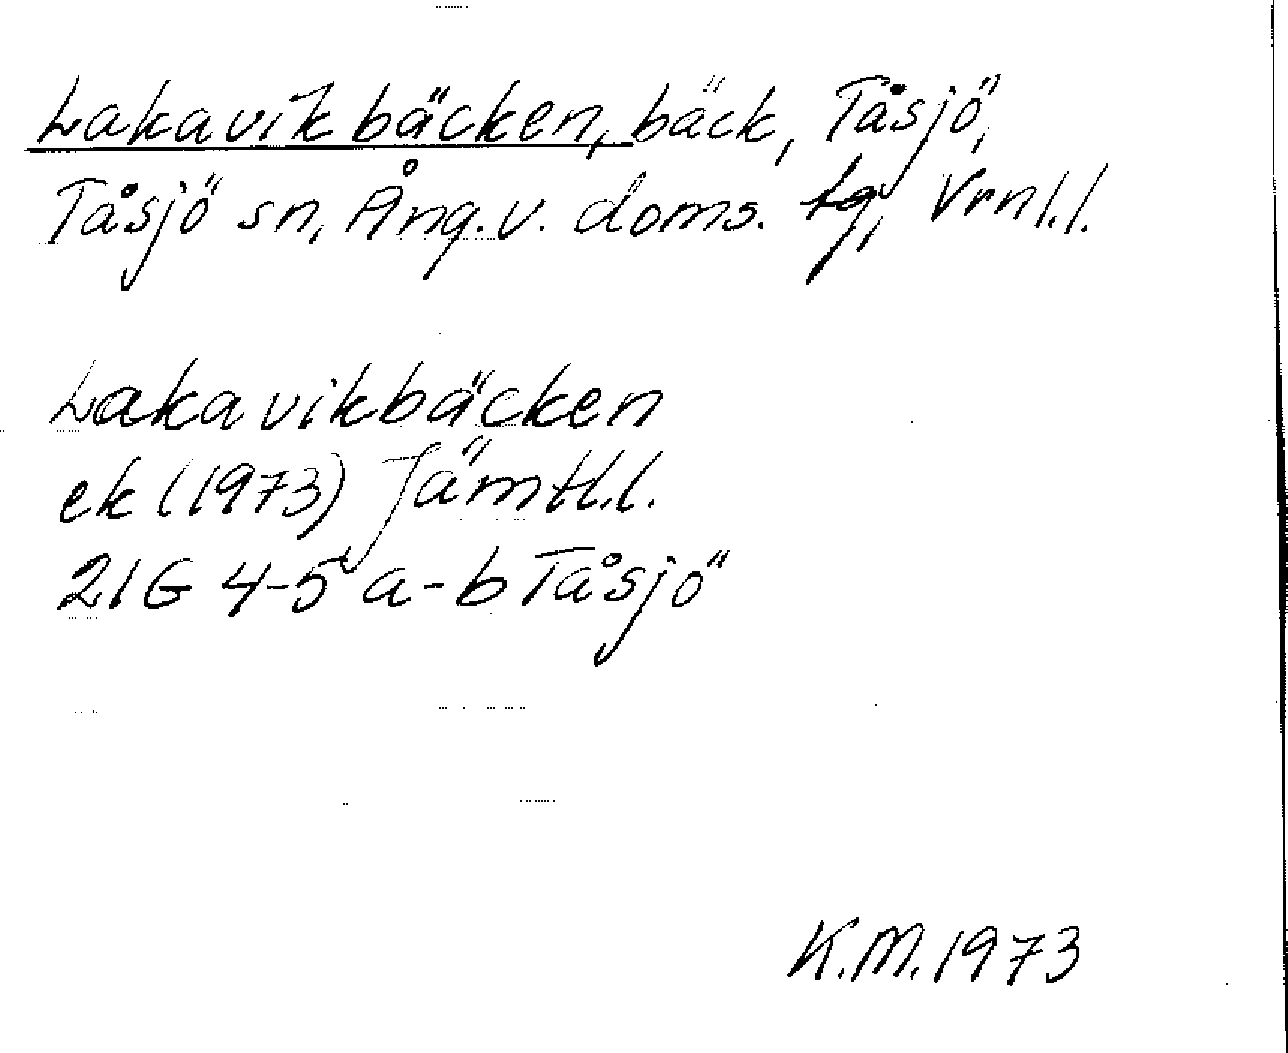 Lakavikbäcken, bäck, Tåsjö,
Tåsjö sn, Ång.v. doms. tg, Vrnl.l.
Lakavikbäcken
ek (1973) Jämtl.l.
21G 4-5 a-b Tåsjö
K.M. 1973